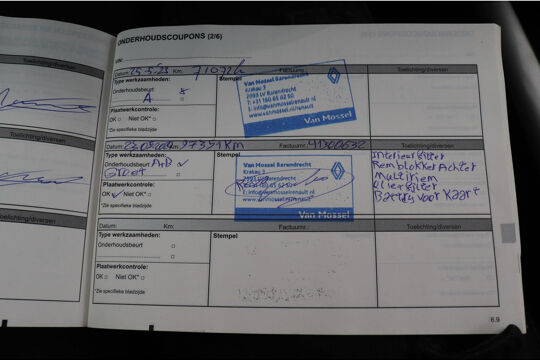 ONDERHOUDSCOUPONS (2/6)
VIN:
Toelichting/diversen
Datum: 25-5-23 Km: Factuurnr.: Toelichting/diversen
Type werkzaamheden: Stempel
Onderhoudsbeurt
A
Plaatwerkcontrole:
OK □ Niet OK* □
*Zie specifieke bladzijde
Van Mossel Barendrecht
Krakau 3
2993 LV Barendrecht
T: +31 180 65 02 50
E: info@vanmosselrenault.nl
vanmosselrenault.nl
Van Mossel
Toelichting/diversen
Datum: Km Factuurnr.: Toelichting/diversen
Type werkzaamheden: Stempel
Onderhoudsbeurt A+B
Groot
Plaatwerkcontrole:
OK Niet OK* □
*Zie specifieke bladzijde
Van Mossel Barendrecht
Krakau 3
2993 LV Barendrecht
180 65 02 50
E: info@vanmosselrenault.nl
www.vanmossel.nl/renault
Van Mossel
Interieurfilter
Remblokken Achter
Multiriem
Oliefilter
Batterij voor Kaart
Toelichting/diversen
Datum: Km: Factuurnr.: Toelichting/diversen
Type werkzaamheden: Stempel
Onderhoudsbeurt □
Plaatwerkcontrole:
OK □ Niet OK* □
*Zie specifieke bladzijde
6.9